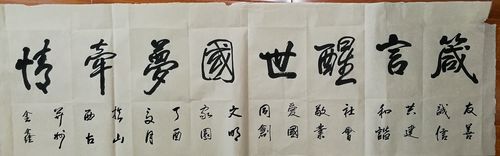 箴言醒世國夢牽情
友善
誠信
共建
和諧
社會
敬業
愛國
同創
文明
家園
丁酉
月
山
西台
金鑫